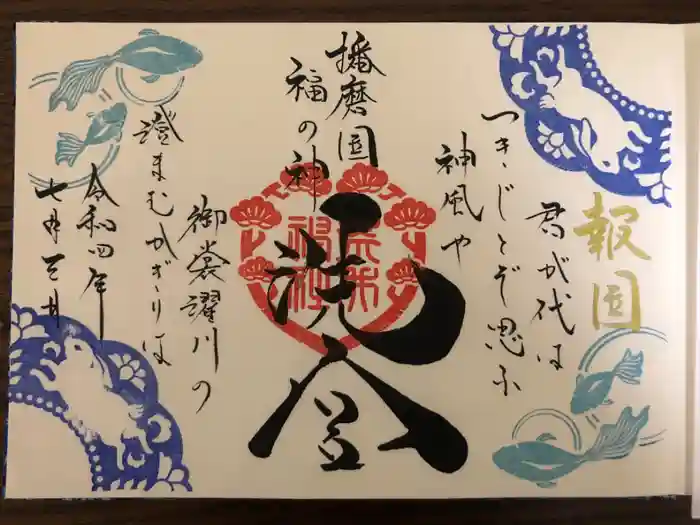 報国
君が代は
つきじとぞ思ふ
神風や
播磨国
福の神
御裳濯川の
澄まむかぎりは
令和四年
七月三日